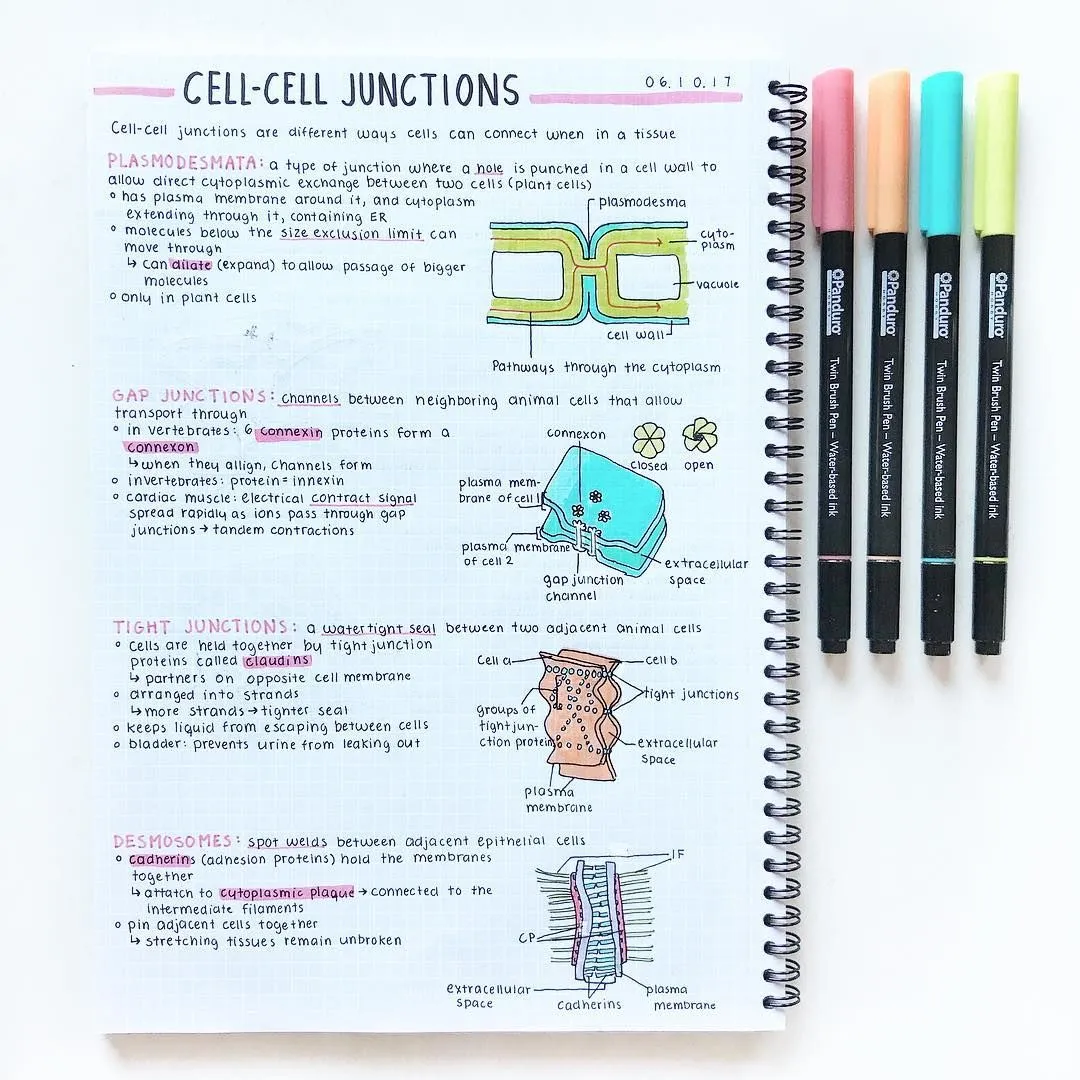 CELL-CELL JUNCTIONS
06.10.17
Cell-cell junctions are different ways cells can connect when in a tissue
PLASMODESMATA: a type of junction where a hole is punched in a cell wall to
allow direct cytoplasmic exchange between two cells (plant cells)
° has plasma membrane around it, and cytoplasm
extending through it, containing ER
° molecules below the size exclusion limit can
move through
↳ can dilate (expand) to allow passage of bigger
molecules
° only in plant cells
plasmodesma
cyto-
plasm
vacuole
cell wall
Pathways through the cytoplasm
GAP JUNCTIONS: channels between neighboring animal cells that allow
transport through
° in vertebrates: 6 connexin proteins form a
connexon
↳ when they align, channels form
° invertebrates: protein = innexin
° cardiac muscle: electrical contract signal
spread rapidly as ions pass through gap
junctions → tandem contractions
connexon
closed
open
plasma mem-
brane of cell 1
plasma membrane
of cell 2
gap junction
channel
extracellular
space
TIGHT JUNCTIONS: a watertight seal between two adjacent animal cells
° cells are held together by tight junction
proteins called claudins
↳ partners on opposite cell membrane
° arranged into strands
↳ more strands → tighter seal
° keeps liquid from escaping between cells
° bladder: prevents urine from leaking out
Cell a
cell b
tight junctions
groups of
tight jun-
ction protein
extracellular
space
plasma
membrane
DESMOSOMES: spot welds between adjacent epithelial cells
° cadherins (adhesion proteins) hold the membranes
together
↳ attatch to cytoplasmic plaque → connected to the
intermediate filaments
° pin adjacent cells together
↳ stretching tissues remain unbroken
IF
CP
extracellular
space
cadherins
plasma
membrane
Panduro
HOBBY
Twin Brush Pen – Water-based ink
Panduro
HOBBY
Twin Brush Pen – Water-based ink
Panduro
HOBBY
Twin Brush Pen – Water-based ink
Panduro
HOBBY
Twin Brush Pen – Water-based ink